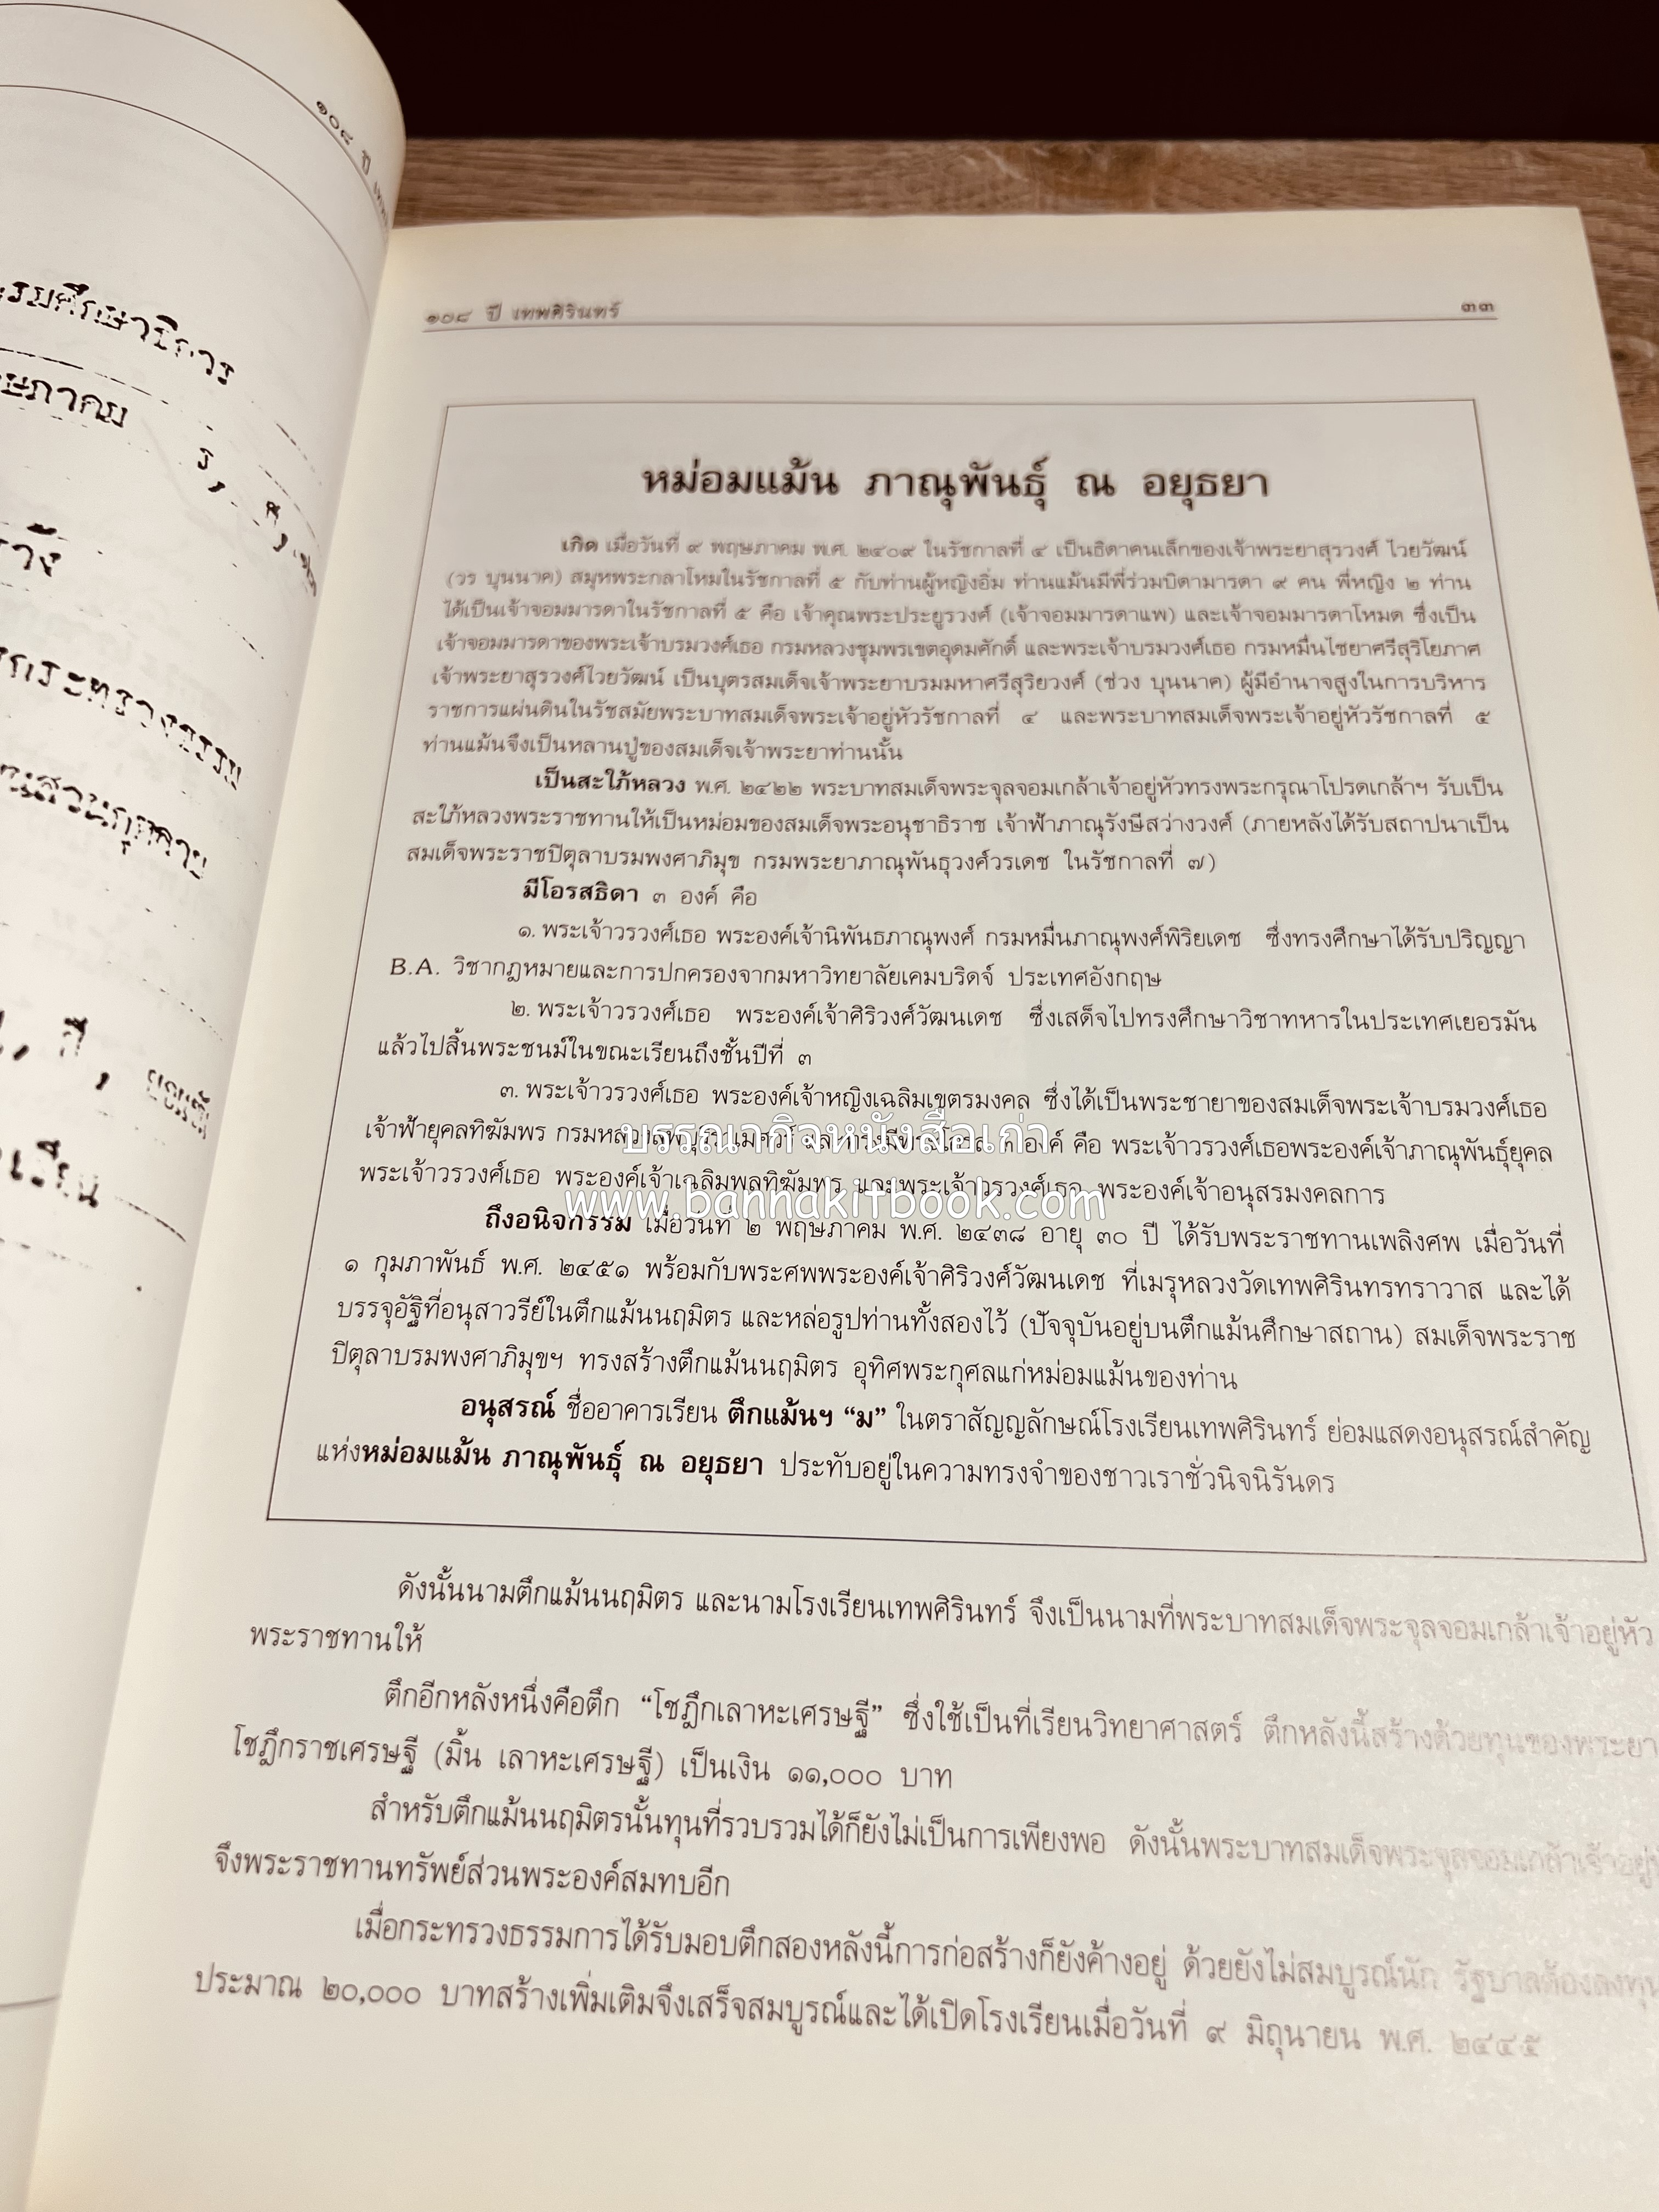 ๑๐๘ ปี
รมศึกษาธิการ
ษภาคม ร, ศ,
วัง
๑๐๘ ปี เทพศิรินทร์ ๓๓
หม่อมแม้น ภาณุพันธุ์ ณ อยุธยา
เกิด เมื่อวันที่ ๙ พฤษภาคม พ.ศ. ๒๔๐๙ ในรัชกาลที่ ๔ เป็นธิดาคนเล็กของเจ้าพระยาสุรวงศ์ ไวยวัฒน์
(วร บุนนาค) สมุหพระกลาโหมในรัชกาลที่ ๕ กับท่านผู้หญิงอิ่ม ท่านแม้นมีพี่ร่วมบิดามารดา ๙ คน พี่หญิง ๒ ท่าน
ได้เป็นเจ้าจอมมารดาในรัชกาลที่ ๕ คือ เจ้าคุณพระประยูรวงศ์ (เจ้าจอมมารดาแพ) และเจ้าจอมมารดาโหมด ซึ่งเป็น
เจ้าจอมมารดาของพระเจ้าบรมวงศ์เธอ กรมหลวงชุมพรเขตอุดมศักดิ์ และพระเจ้าบรมวงศ์เธอ กรมหมื่นไชยาศรีสุริโยภาศ
เจ้าพระยาสุรวงศ์ไวยวัฒน์ เป็นบุตรสมเด็จเจ้าพระยาบรมมหาศรีสุริยวงศ์ (ช่วง บุนนาค) ผู้มีอำนาจสูงในการบริหาร
ราชการแผ่นดินในรัชสมัยพระบาทสมเด็จพระเจ้าอยู่หัวรัชกาลที่ ๔ และพระบาทสมเด็จพระเจ้าอยู่หัวรัชกาลที่ ๕
ท่านแม้นจึงเป็นหลานปู่ของสมเด็จเจ้าพระยาท่านนั้น
เป็นสะใภ้หลวง พ.ศ. ๒๔๒๒ พระบาทสมเด็จพระจุลจอมเกล้าเจ้าอยู่หัวทรงพระกรุณาโปรดเกล้าฯ รับเป็น
สะใภ้หลวงพระราชทานให้เป็นหม่อมของสมเด็จพระอนุชาธิราช เจ้าฟ้าภาณุรังษีสว่างวงศ์ (ภายหลังได้รับสถาปนาเป็น
สมเด็จพระราชปิตุลาบรมพงศาภิมุข กรมพระยาภาณุพันธุวงศ์วรเดช ในรัชกาลที่ ๗)
มีโอรสธิดา ๓ องค์ คือ
๑. พระเจ้าวรวงศ์เธอ พระองค์เจ้านิพันธภาณุพงศ์ กรมหมื่นภาณุพงศ์พิริยเดช ซึ่งทรงศึกษาได้รับปริญญา
B.A. วิชากฎหมายและการปกครองจากมหาวิทยาลัยเคมบริดจ์ ประเทศอังกฤษ
๒. พระเจ้าวรวงศ์เธอ พระองค์เจ้าศิริวงศ์วัฒนเดช ซึ่งเสด็จไปทรงศึกษาวิชาทหารในประเทศเยอรมัน
แล้วไปสิ้นพระชนม์ในขณะเรียนถึงชั้นปีที่ ๓
๓. พระเจ้าวรวงศ์เธอ พระองค์เจ้าหญิงเฉลิมเขตรมงคล ซึ่งได้เป็นพระชายาของสมเด็จพระเจ้าบรมวงศ์เธอ
เจ้าฟ้ายุคลทิฆัมพร องค์ คือ พระเจ้าวรวงศ์เธอพระองค์เจ้าภาณุพันธุ์ยุคล
บรรณากิจหนังสือเก่า
พระเจ้าวรวงศ์เธอ พระองค์เจ้าเฉลิมพลทิฆัมพร และพระเจ้าวรวงศ์เธอ พระองค์เจ้าอนุสรมงคลการ
www.bannakitbook.com
ถึงอนิจกรรม เมื่อวันที่ ๒ พฤษภาคม พ.ศ. ๒๔๓๘ อายุ ๓๐ ปี ได้รับพระราชทานเพลิงศพ เมื่อวันที่
๑ กุมภาพันธ์ พ.ศ. ๒๔๕๑ พร้อมกับพระศพพระองค์เจ้าศิริวงศ์วัฒนเดช ที่เมรุหลวงวัดเทพศิรินทรทราวาส และได้
บรรจุอัฐิที่อนุสาวรีย์ในตึกแม้นนฤมิตร และหล่อรูปท่านทั้งสองไว้ (ปัจจุบันอยู่บนตึกแม้นศึกษาสถาน) สมเด็จพระราช
ปิตุลาบรมพงศาภิมุขฯ ทรงสร้างตึกแม้นนฤมิตร อุทิศพระกุศลแก่หม่อมแม้นของท่าน
อนุสรณ์ ชื่ออาคารเรียน ตึกแม้นฯ “ม” ในตราสัญญลักษณ์โรงเรียนเทพศิรินทร์ ย่อมแสดงอนุสรณ์สำคัญ
แห่งหม่อมแม้น ภาณุพันธุ์ ณ อยุธยา ประทับอยู่ในความทรงจำของชาวเราชั่วนิจนิรันดร
ดังนั้นนามตึกแม้นนฤมิตร และนามโรงเรียนเทพศิรินทร์ จึงเป็นนามที่พระบาทสมเด็จพระจุลจอมเกล้าเจ้าอยู่หัว
พระราชทานให้
ตึกอีกหลังหนึ่งคือตึก “โชฎึกเลาหะเศรษฐี” ซึ่งใช้เป็นที่เรียนวิทยาศาสตร์ ตึกหลังนี้สร้างด้วยทุนของพระยา
โชฎึกราชเศรษฐี (มิ้น เลาหะเศรษฐี) เป็นเงิน ๑๑,๐๐๐ บาท
สำหรับตึกแม้นนฤมิตรนั้นทุนที่รวบรวมได้ก็ยังไม่เป็นการเพียงพอ ดังนั้นพระบาทสมเด็จพระจุลจอมเกล้าเจ้าอยู่
จึงพระราชทานทรัพย์ส่วนพระองค์สมทบอีก
เมื่อกระทรวงธรรมการได้รับมอบตึกสองหลังนี้การก่อสร้างก็ยังค้างอยู่ ด้วยยังไม่สมบูรณ์นัก รัฐบาลต้องลงทุน
ประมาณ ๒๐,๐๐๐ บาทสร้างเพิ่มเติมจึงเสร็จสมบูรณ์และได้เปิดโรงเรียนเมื่อวันที่ ๙ มิถุนายน พ.ศ. ๒๔๔๕